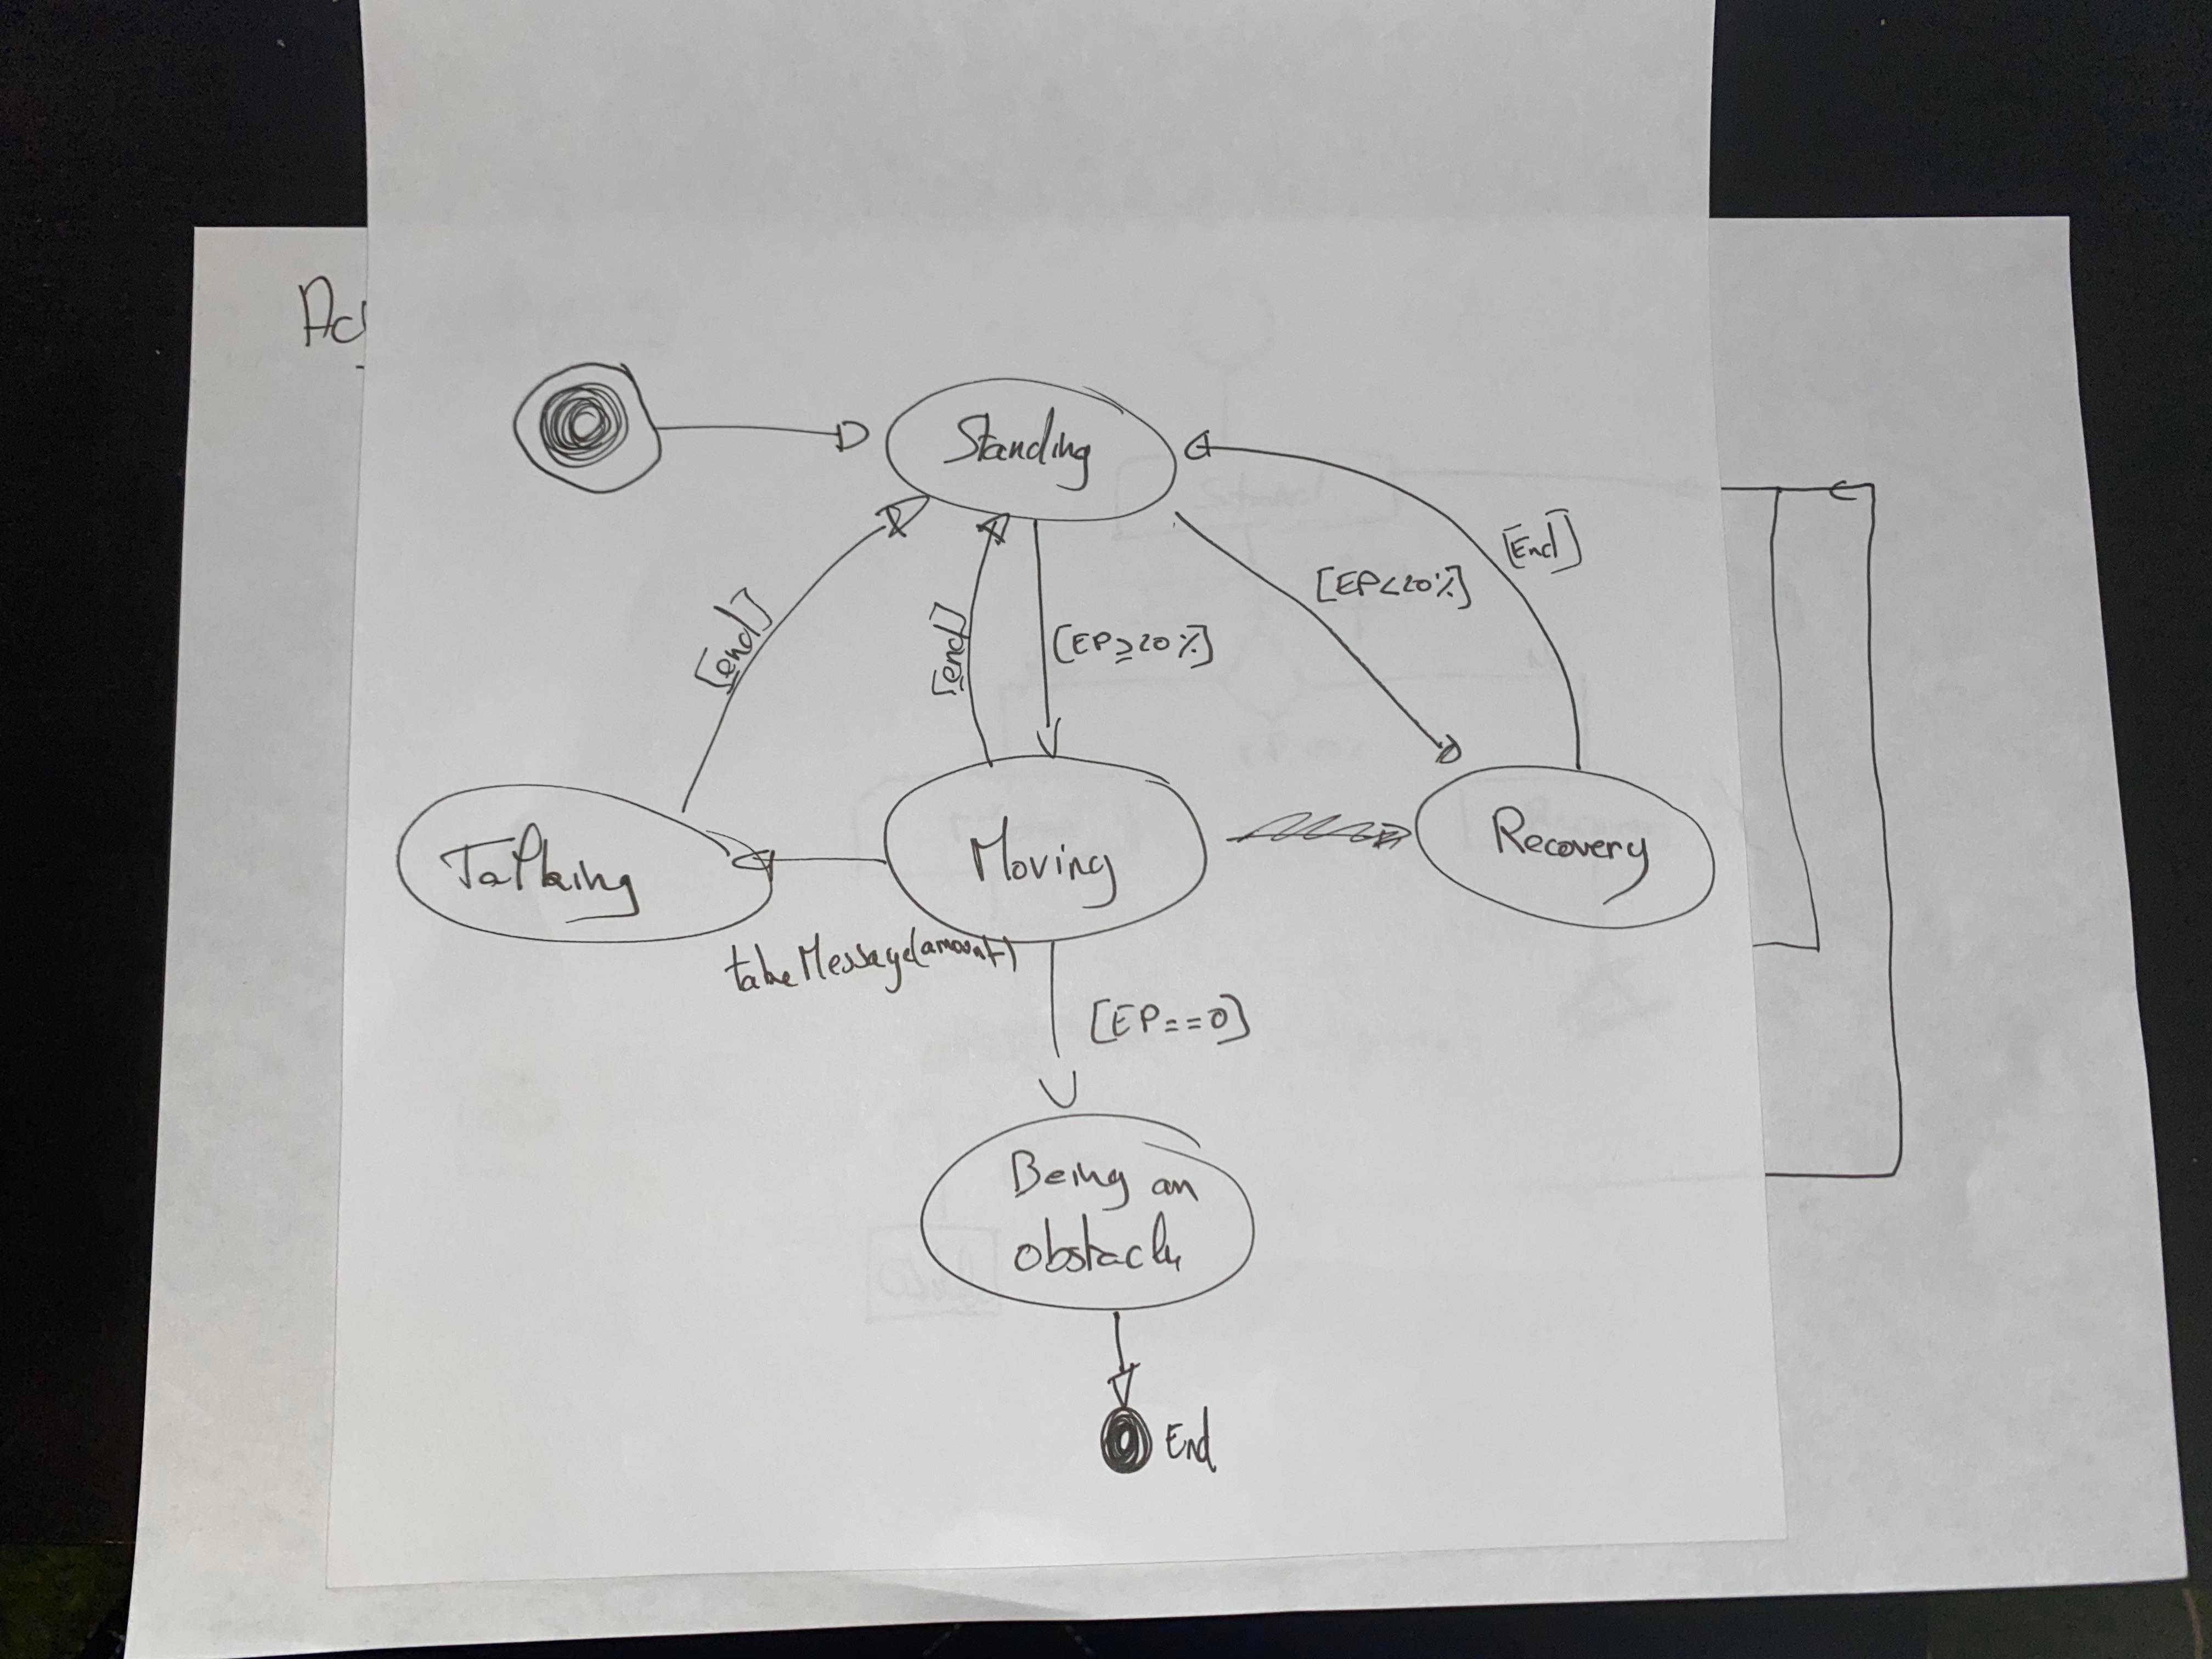 Ac
Standing
[End]
[EP<20%]
[end]
[end]
[EP≥20%]
Talking
Moving
Recovery
takeMessage(amount)
[EP==0]
Being an
obstacle
End